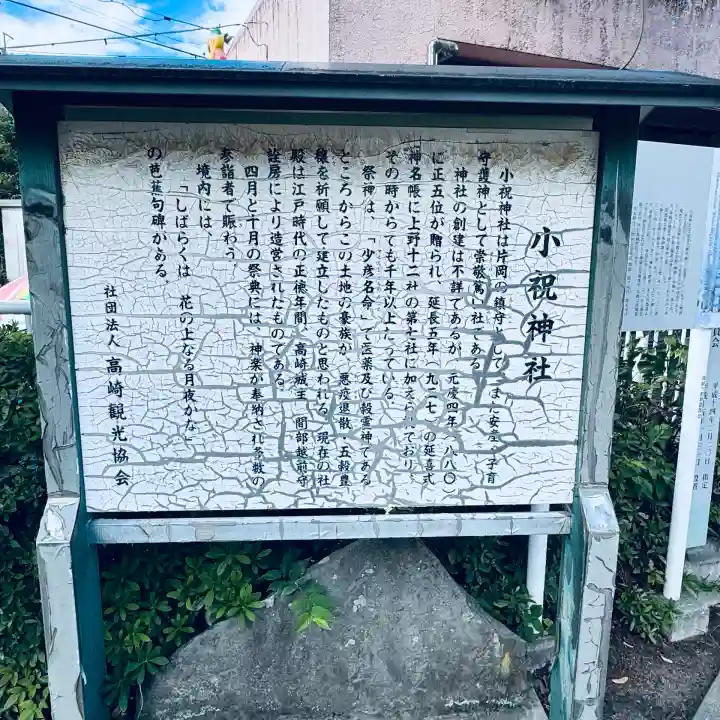 小祝神社
小祝神社は片岡の鎮守として、また安産・子育
守護神として崇敬篤い社である。
神社の創建は不詳であるが、元慶四年（八八〇）
に正五位が贈られ、延長五年（九二七）の延喜式
神名帳に上野十二社の第七社に加えられており、
その時からでも千年以上たっている。
祭神は、「少彦名命」で医薬及び穀霊神である
ところからこの土地の豪族が、悪疫退散・五穀豊
穣を祈願して建立したものと思われる。現在の社
殿は江戸時代の正徳年間、高崎城主　間部越前守
詮房により造営されたものである。
四月と十月の祭典には、神楽が奉納され多数の
参詣者で賑わう。
境内には、
「しばらくは　花の上なる月夜かな」
の芭蕉句碑がある。
社団法人　高崎観光協会